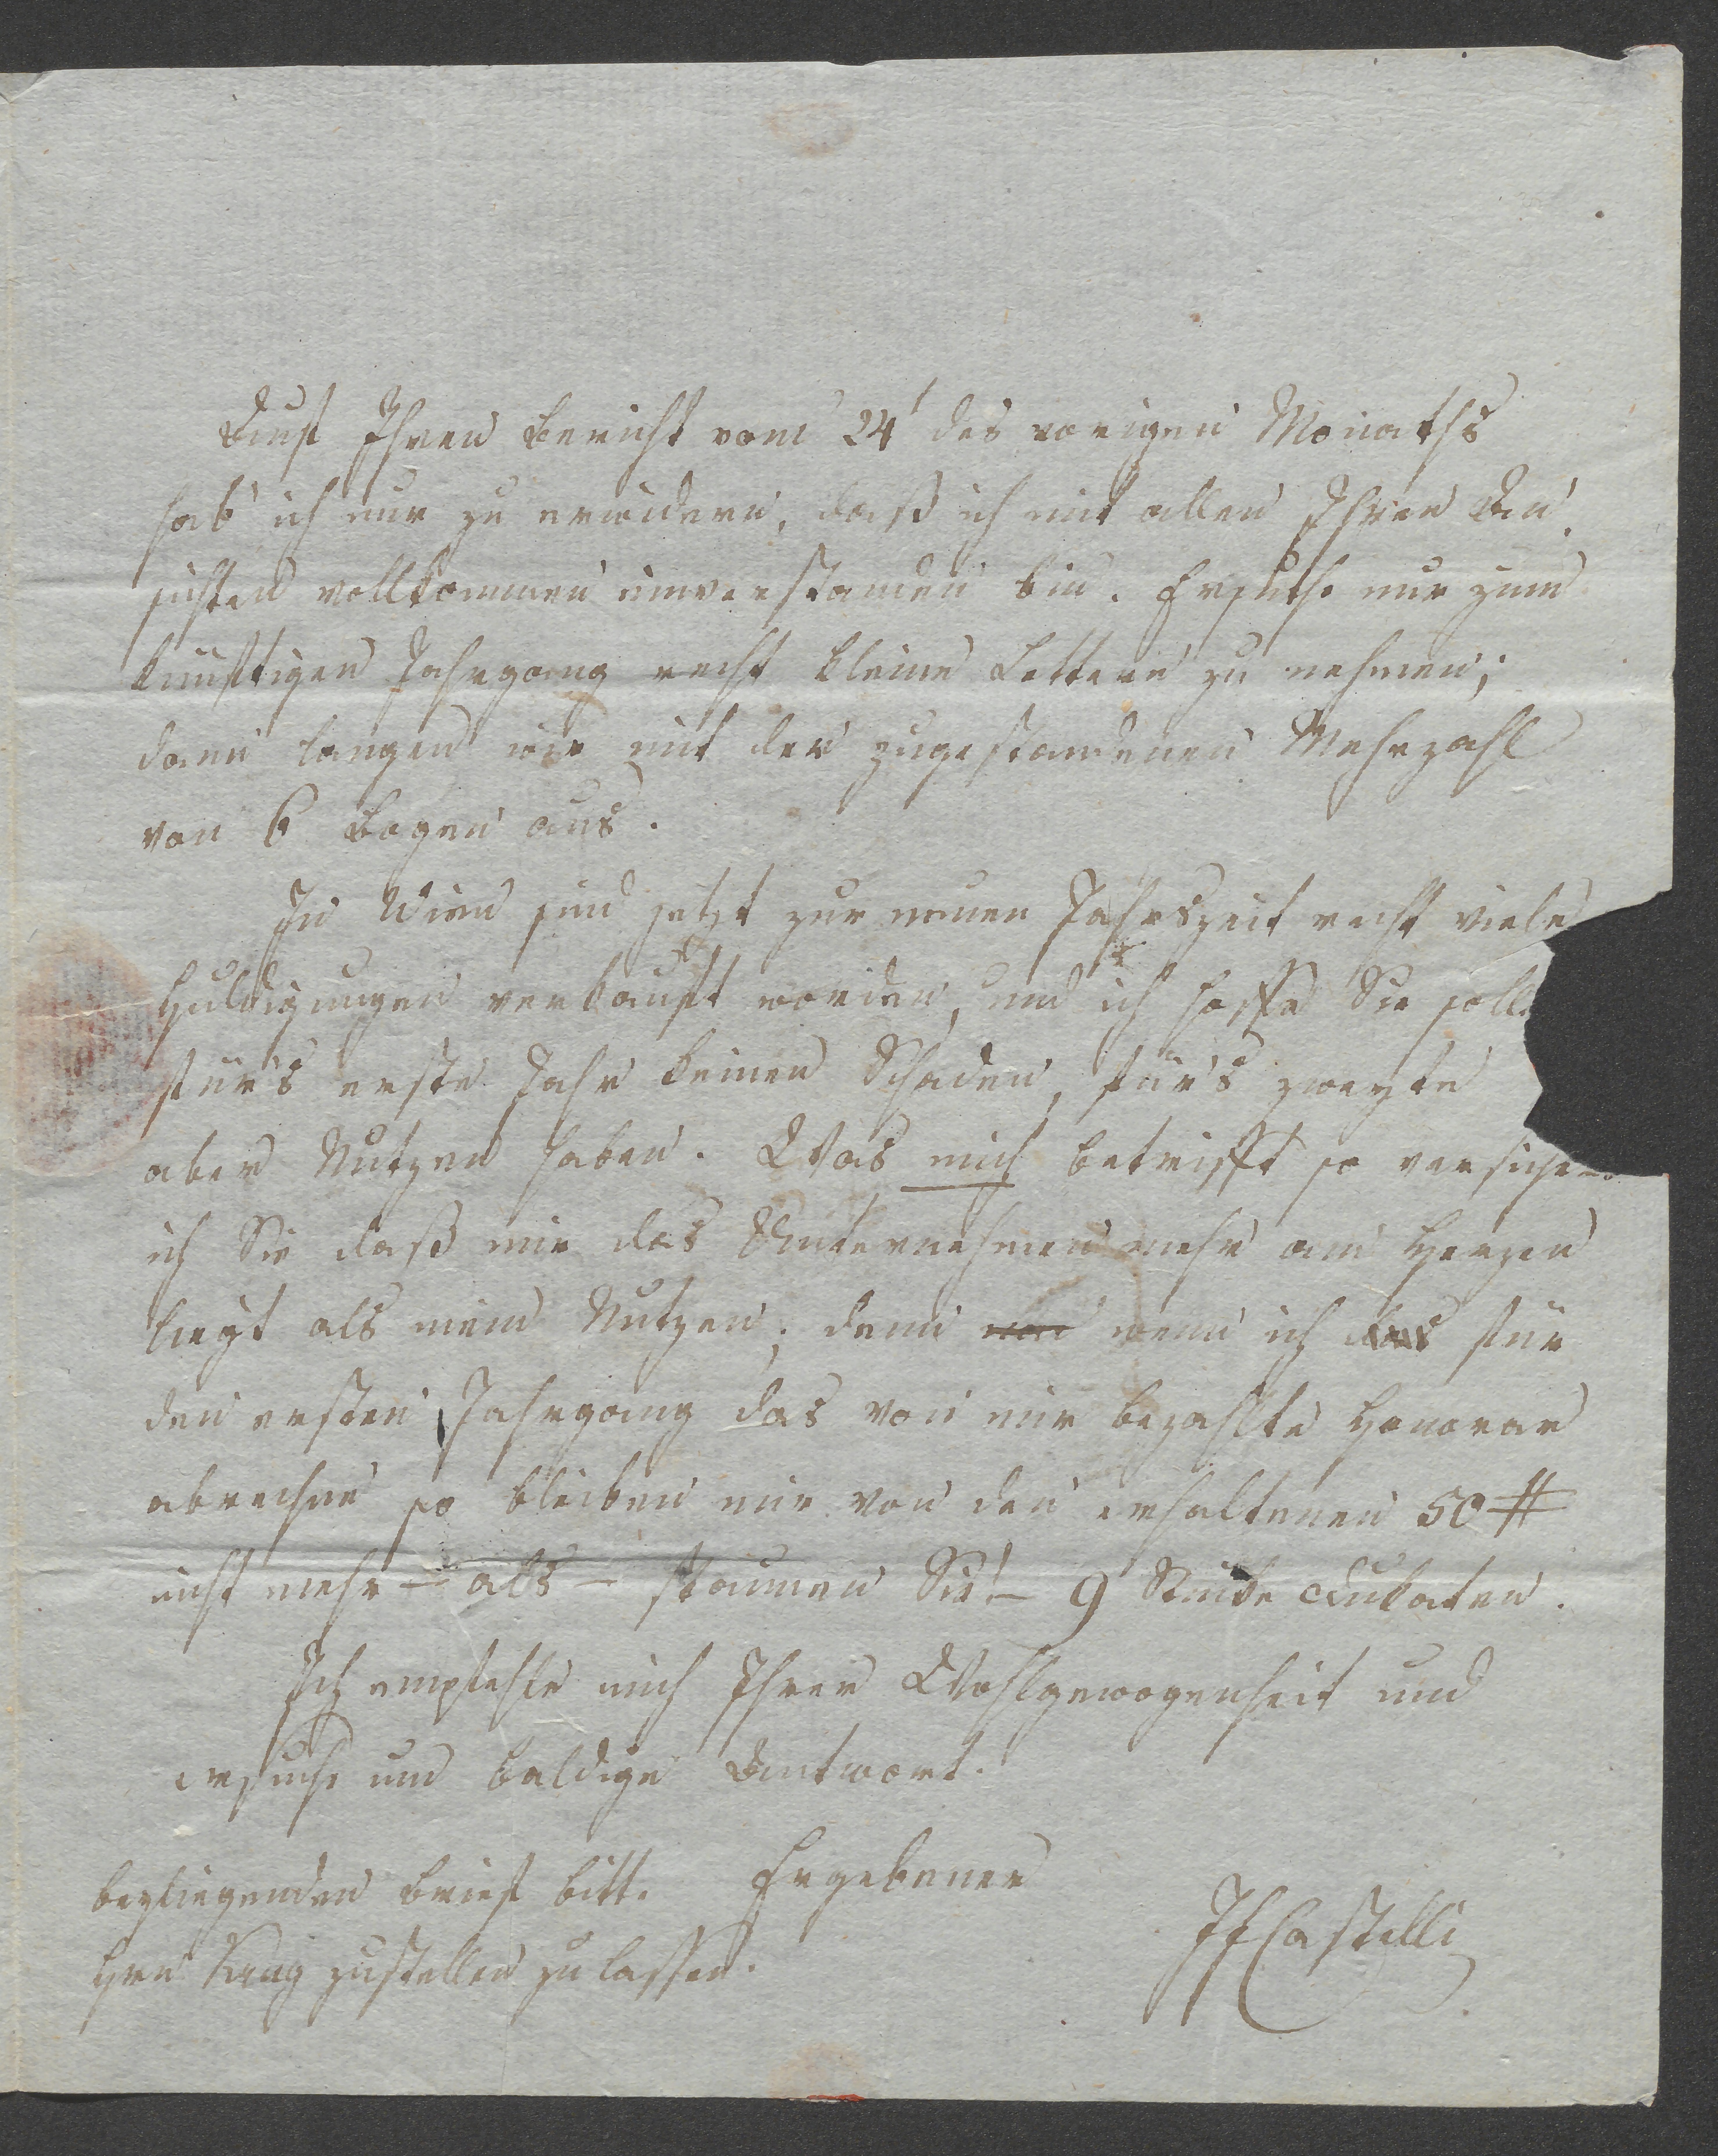 Auf Ihren Bericht vom 24' des vorigen Monaths
hab' ich nur zu erwidern, daß ich mit allen Ihren An
sichten vollkommen einverstanden bin. Ersuche nur zum
künftigen Jahrgang recht kleine Lettern zu nehmen;
dann langen wir mit der zugestandenen Mehrzahl
von 6 Bogen aus.
In Wien sind jetzt zur neuen Jahrszeit recht viele
Huldigungen verkauft worden, und ich hoffe Sie solle
für's erste Jahr keinen Schaden, für's zweyte
aber Nutzen haben. Was mich betrifft so versichere
ich Sie daß mir das Unternehmen mehr am Herzen
liegt als mein Nutzen; denn wenn ich für
den ersten Jahrgang das von mir bezahlte Honorar
abrechne so bleiben mir von den erhaltenen 50 #
nicht mehr – als – staunen Sie! – 9 Stücke Dukaten.
Ich empfehle mich Ihrer Wohlgewogenheit und
ersuche um baldige Antwort.
Ergebener
JFCastelli
beyliegenden Brief bitte
Hrn Krug zustellen zu lassen.